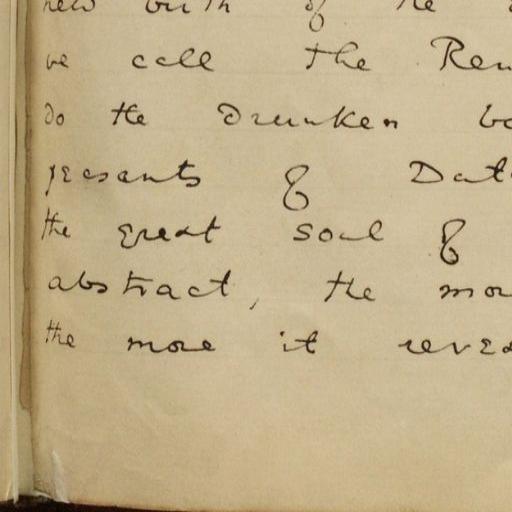 new birth of the
we call the Ren
do the drunken bo
peasants of Dut
the great soul of
abstract, the mor
the more it revea